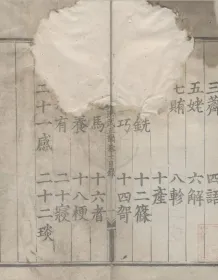 三薺 四語
五姥 六解
七賄 八軫
十產
銑 十二篠
巧 十四哿
馬 十六者
養 十八梗
有 二十寢
二十一感 二十二琰